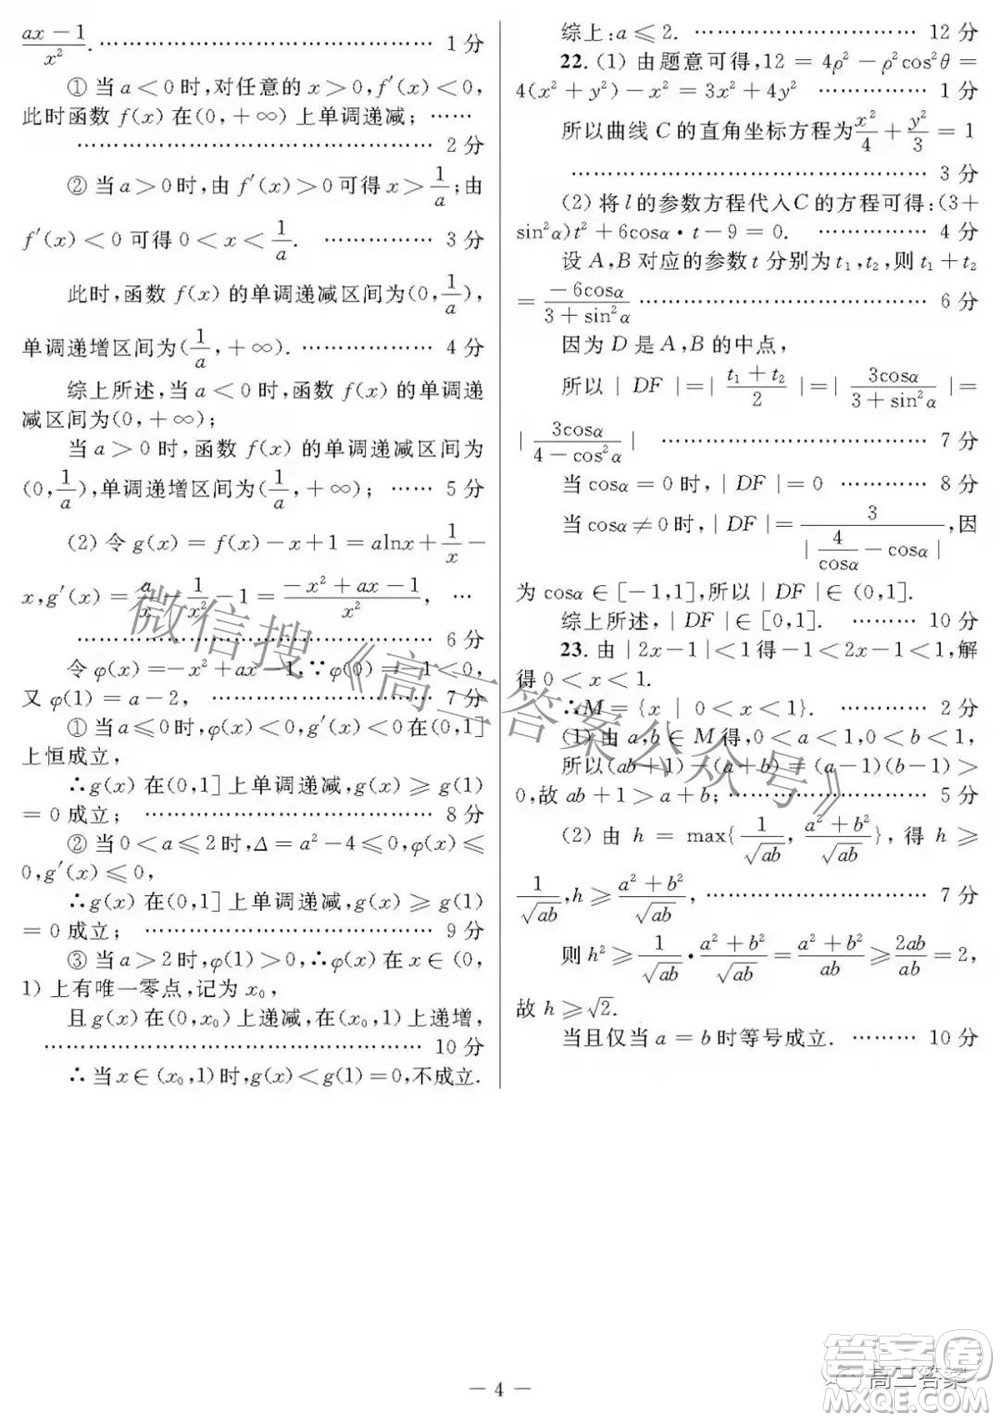 (ax－1)/x². …………………………………… 1 分
① 当 a＜0 时,对任意的 x＞0,f′(x)＜0,
此时函数 f(x)在(0,＋∞)上单调递减; ……
……………………………………… 2 分
② 当 a＞0 时,由 f′(x)＞0 可得 x＞1/a;由
f′(x)＜0 可得 0＜x＜1/a. ……………… 3 分
此时,函数 f(x)的单调递减区间为(0,1/a),
单调递增区间为(1/a,＋∞). ……………… 4 分
综上所述,当 a＜0 时,函数 f(x)的单调递
减区间为(0,＋∞);
当 a＞0 时,函数 f(x)的单调递减区间为
(0,1/a),单调递增区间为(1/a,＋∞); …… 5 分
(2) 令 g(x)＝f(x)－x＋1＝alnx＋1/x－
x,g′(x)＝a/x－1/x²－1＝(－x²＋ax－1)/x², …
……………………………………… 6 分
令 φ(x)＝－x²＋ax－1,∵φ(0)＝－1＜0,
又 φ(1)＝a－2, ………………………… 7 分
① 当 a≤0 时,φ(x)＜0,g′(x)＜0 在(0,1]
上恒成立,
∴g(x)在(0,1]上单调递减,g(x)≥g(1)
＝0 成立; ……………………………… 8 分
② 当 0＜a≤2 时,Δ＝a²－4≤0,φ(x)≤
0,g′(x)≤0,
∴g(x)在(0,1]上单调递减,g(x)≥g(1)
＝0 成立; ……………………………… 9 分
③ 当 a＞2 时,φ(1)＞0,∴φ(x)在 x∈(0,
1)上有唯一零点,记为 x₀,
且 g(x)在(0,x₀)上递减,在(x₀,1)上递增,
………………………………………… 10 分
∴当 x∈(x₀,1)时,g(x)＜g(1)＝0,不成立.
综上:a≤2. ……………………… 12 分
22. (1) 由题意可得,12＝4ρ²－ρ²cos²θ＝
4(x²＋y²)－x²＝3x²＋4y² …………… 1 分
所以曲线 C 的直角坐标方程为x²/4＋y²/3＝1
……………………………………… 3 分
(2) 将 l 的参数方程代入 C 的方程可得:(3＋
sin²α)t²＋6cosα·t－9＝0. …………… 4 分
设 A,B 对应的参数 t 分别为 t₁,t₂,则 t₁＋t₂
＝－6cosα/(3＋sin²α) ……………………………… 6 分
因为 D 是 A,B 的中点,
所以|DF|＝|(t₁＋t₂)/2|＝|3cosα/(3＋sin²α)|＝
|3cosα/(4－cos²α)| …………………………… 7 分
当 cosα＝0 时,|DF|＝0 ………… 8 分
当 cosα≠0 时,|DF|＝3/|4/cosα－cosα|,因
为 cosα∈[－1,1],所以|DF|∈(0,1].
综上所述,|DF|∈[0,1]. ……… 10 分
23. 由|2x－1|＜1得－1＜2x－1＜1,解
得 0＜x＜1.
∴M＝{x|0＜x＜1}. ………… 2 分
(1) 由 a,b∈M 得,0＜a＜1,0＜b＜1,
所以(ab＋1)－(a＋b)＝(a－1)(b－1)＞
0,故 ab＋1＞a＋b; …………………… 5 分
(2) 由 h＝max{1/√ab, (a²＋b²)/√ab},得 h≥
1/√ab,h≥(a²＋b²)/√ab, ……………………… 7 分
则 h²≥1/√ab·(a²＋b²)/√ab＝(a²＋b²)/ab≥2ab/ab＝2,
故 h≥√2.
当且仅当 a＝b 时等号成立. ……… 10 分
微信搜《高三答案公众号》
答案圈
高三答案
— 4 —